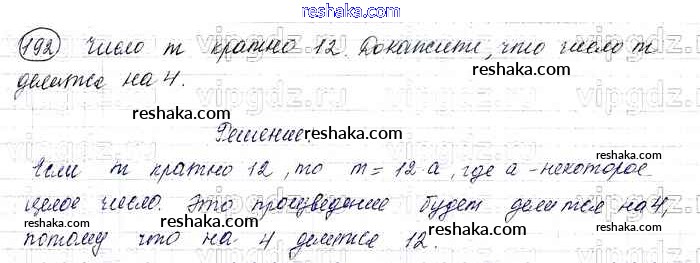 reshaka.com
192 Число m кратно 12. Докажите, что число m
делится на 4.
reshaka.com
reshaka.com
Решение.
reshaka.com
Если m кратно 12, то m = 12 · a, где a - некоторое
целое число. Это произведение будет делится на 4,
reshaka.com
потому что на 4 делится 12.
reshaka.com